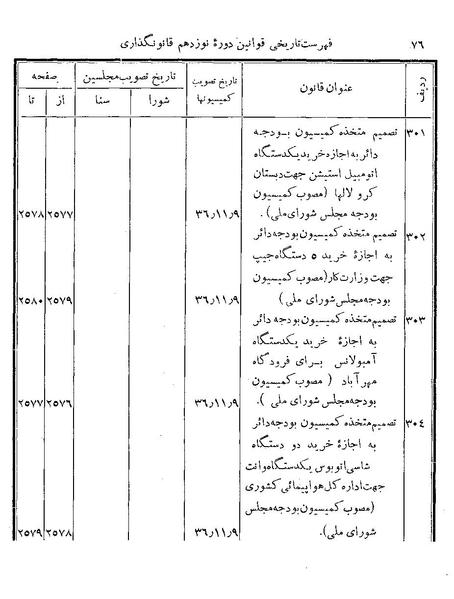 ۷۶
فهرست تاریخی قوانین دورهٔ نوزدهم قانونگذاری
ردیف
عنوان قانون
تاریخ تصویب کمیسیونها
تاریخ تصویب مجلسین
شورا
سنا
صفحه
از
تا
۳۰۱
تصمیم متخذه کمیسیون بودجه
دائر به اجازه خرید یکدستگاه
اتومبیل استیشن جهت دبستان
کر و لالها (مصوب کمیسیون
بودجه مجلس شورای ملی).
۳۶٫۱۱٫۹
۲۵۷۷
۲۵۷۸
۳۰۲
تصمیم متخذه کمیسیون بودجه دائر
به اجازهٔ خرید ۵ دستگاه جیپ
جهت وزارت کار (مصوب کمیسیون
بودجه مجلس شورای ملی)
۳۶٫۱۱٫۹
۲۵۷۹
۲۵۸۰
۳۰۳
تصمیم متخذه کمیسیون بودجه دائر
به اجازه خرید یکدستگاه
آمبولانس برای فرودگاه
مهرآباد (مصوب کمیسیون
بودجه مجلس شورای ملی).
۳۶٫۱۱٫۹
۲۵۷۶
۲۵۷۷
۳۰۴
تصمیم متخذه کمیسیون بودجه دائر
به اجازهٔ خرید دو دستگاه
شاسی اتوبوس یکدستگاه وانت
جهت اداره کل هواپیمائی کشوری
(مصوب کمیسیون بودجه مجلس
شورای ملی).
۳۶٫۱۱٫۹
۲۵۷۸
۲۵۷۹